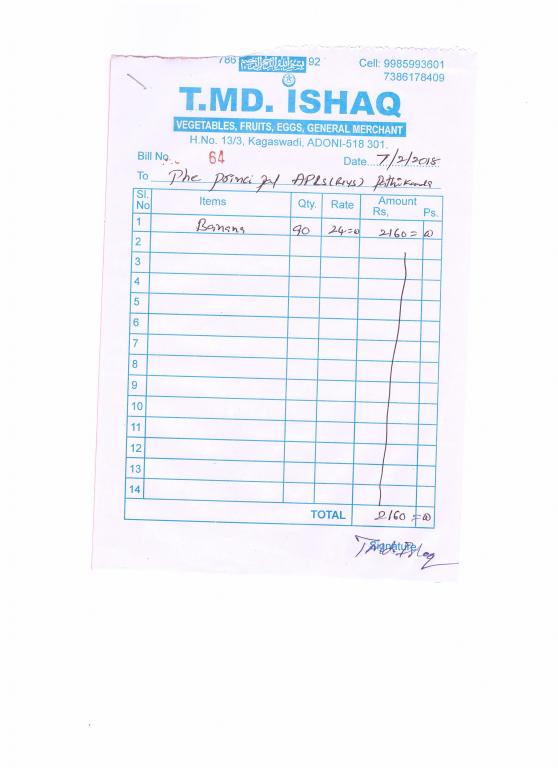 786 92
Cell: 9985993601
7386178409
T.MD. ISHAQ
VEGETABLES, FRUITS, EGGS, GENERAL MERCHANT
H.No. 13/3, Kagaswadi, ADONI-518 301.
Bill No. 64 Date 7/2/2018
To The principal APRS(Boys)
Sl. No Items Qty. Rate Amount Rs, Ps.
1 Banana 90 24=00 2160=00
2
3
4
5
6
7
8
9
10
11
12
13
14
TOTAL 2160=00
Signature